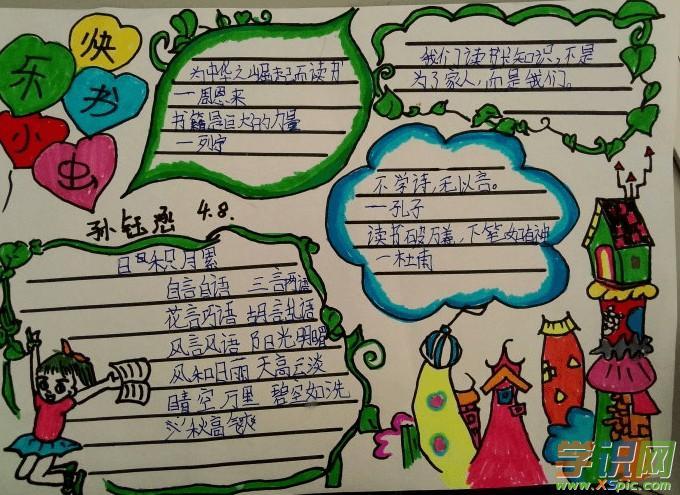 快
乐
书
小
虫
为中华之崛起而读书
一周恩来
书籍是巨大的力量
一列宁
我们读书长知识,不是
为了家人,而是我们。
不学诗,无以言。
一孔子
读书破万卷,下笔如有神
一杜甫
孙钰涵 4.8.
日积月累
自言自语 三言两语
花言巧语 胡言乱语
风言风语 阳光明媚
风和日丽 天高云淡
晴空万里 碧空如洗
秋高气爽
学识网
www.XSpic.com